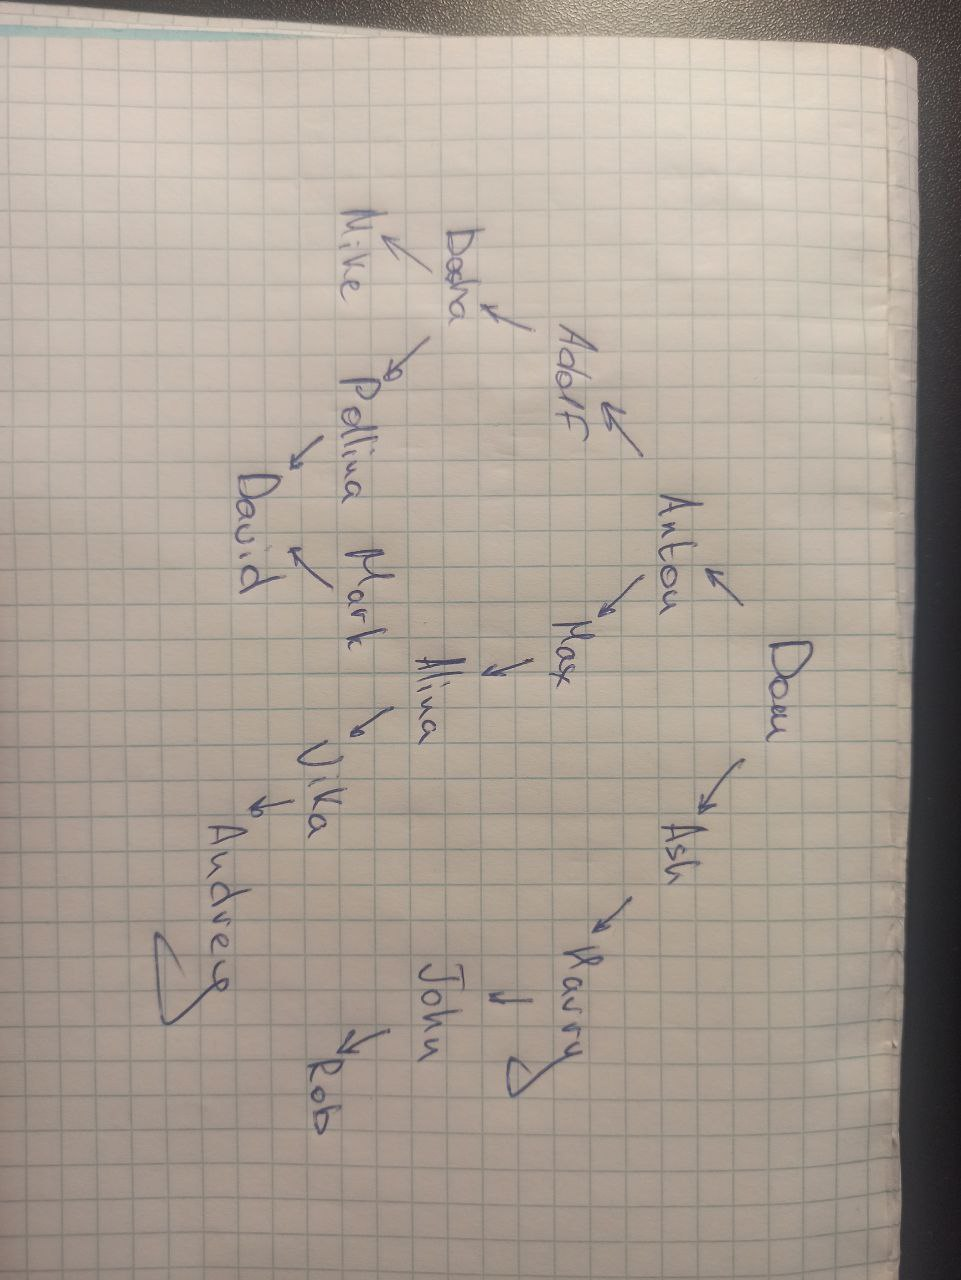 Dom
Anton Ash
Adolf Max Harry
Dasha Alina John
Mike Pollina Mark Vika Rob
David Andrey